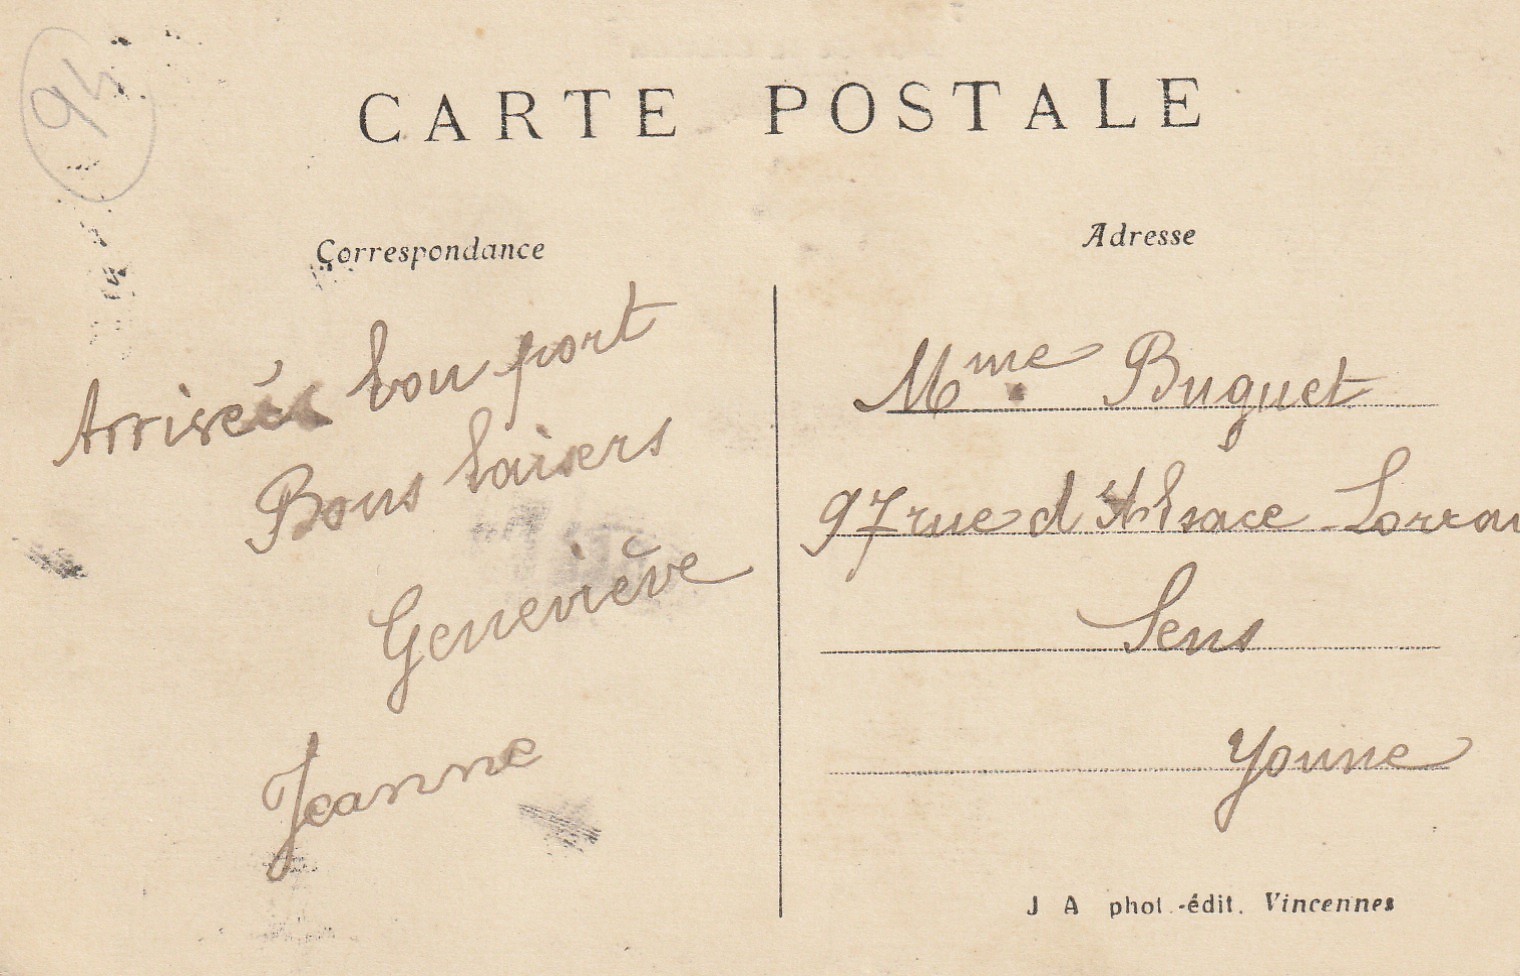 94
CARTE POSTALE
Correspondance
Arrivées bon port
Bons baisers
Geneviève
Jeanne
Adresse
Mme Buguet
97 rue d'Alsace-Lorrai
Sens
Yonne
J A phot.-édit. Vincennes